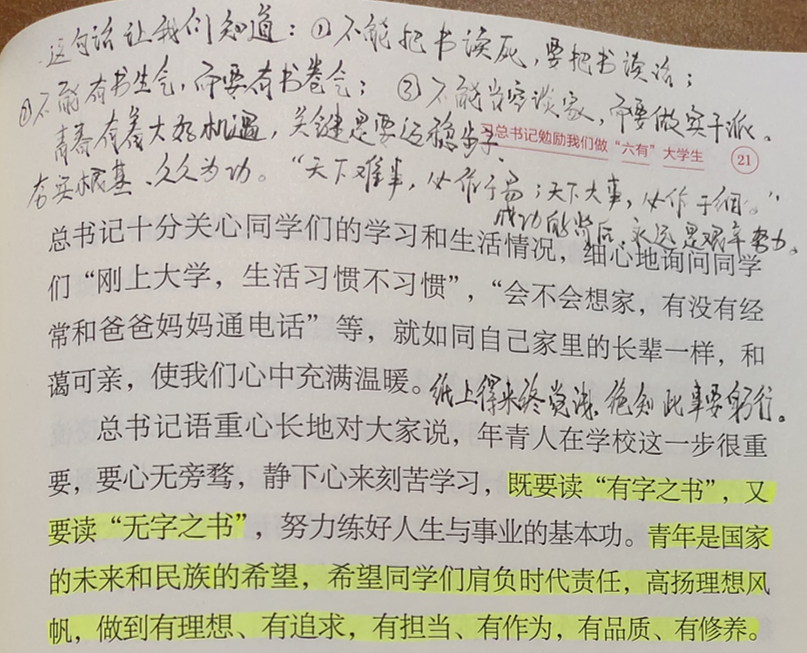 这句话让我们知道：①不能把书读死，要把书读活；
②不能有书生气，而要有书卷气；③不能当空谈家，而要做实干派。
青春有着大好机遇，关键是要迈稳步子、
习总书记勉励我们做“六有”大学生 21
夯实根基、久久为功。“天下难事，必作于易；天下大事，必作于细。”
成功的背后，永远是艰辛努力。
总书记十分关心同学们的学习和生活情况，细心地询问同学
们“刚上大学，生活习惯不习惯”，“会不会想家，有没有经
常和爸爸妈妈通电话”等，就如同自己家里的长辈一样，和
蔼可亲，使我们心中充满温暖。
纸上得来终觉浅，绝知此事要躬行。
总书记语重心长地对大家说，年青人在学校这一步很重
要，要心无旁骛，静下心来刻苦学习，既要读“有字之书”，又
要读“无字之书”，努力练好人生与事业的基本功。青年是国家
的未来和民族的希望，希望同学们肩负时代责任，高扬理想风
帆，做到有理想、有追求，有担当、有作为，有品质、有修养。